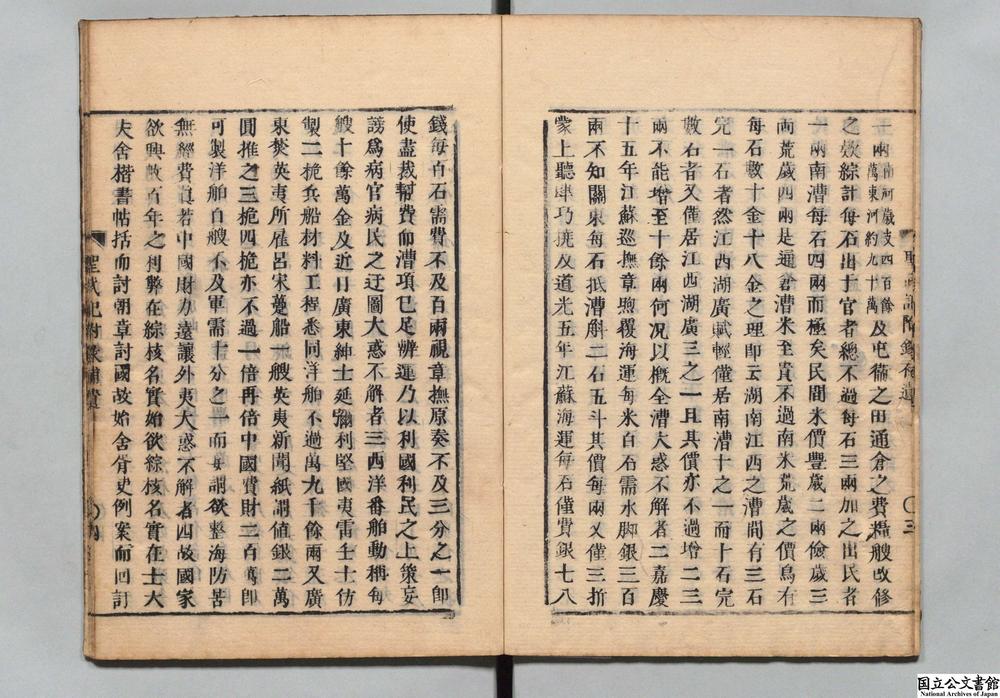 兩南河歲支四百餘萬東河約九十萬及屯衞之田通倉之費糧艘改修
之效綜計每石出于官者總不過每石三兩加之出民者
一兩南漕每石四兩而極矣民間米價豐歲二兩儉歲三
兩荒歲四兩是通倉漕米至貴不過南米荒歲之價烏有
每石數十金十八金之理卽云湖南江西之漕間有三石
完一石者然江西湖廣賦輕僅居南漕十之一而十石完
數石者又僅居江西湖廣三之一且其價亦不過增二三
兩不能增至十餘兩何况以槪全漕大惑不解者二嘉慶
十五年江蘇巡撫章煦覆海運每米百石需水脚銀三百
兩不知關東每石抵漕斛二石五斗其價每兩又僅三折
蒙上聽肆巧撓及道光五年江蘇海運每石僅費銀七八
錢每百石需費不及百兩視章撫原奏不及三分之一卽
使盡裁幫費而漕項已足辨運乃以利國利民之上策妄
謗爲病官病民之迂圖大惑不解者三西洋番舶動稱每
艘十餘萬金及近日廣東紳士延彌利堅國夷雷壬士仿
製二桅兵船材料工程悉同洋舶不過萬九千餘兩又廣
東焚英夷所雇呂宋躉船一艘英夷新聞紙謂值銀二萬
圓推之三桅四桅亦不過一倍再倍中國費財二百萬卽
可製洋舶百艘不及軍需十分之一而妄謂欲整海防苦
無經費眞若中國財力遠讓外夷大惑不解者四故國家
欲興數百年之利弊在綜核名實始欲綜核名實在士大
夫舍楷書帖括而討朝章討國故始舍胥吏例案而圖訏
聖武記附錄